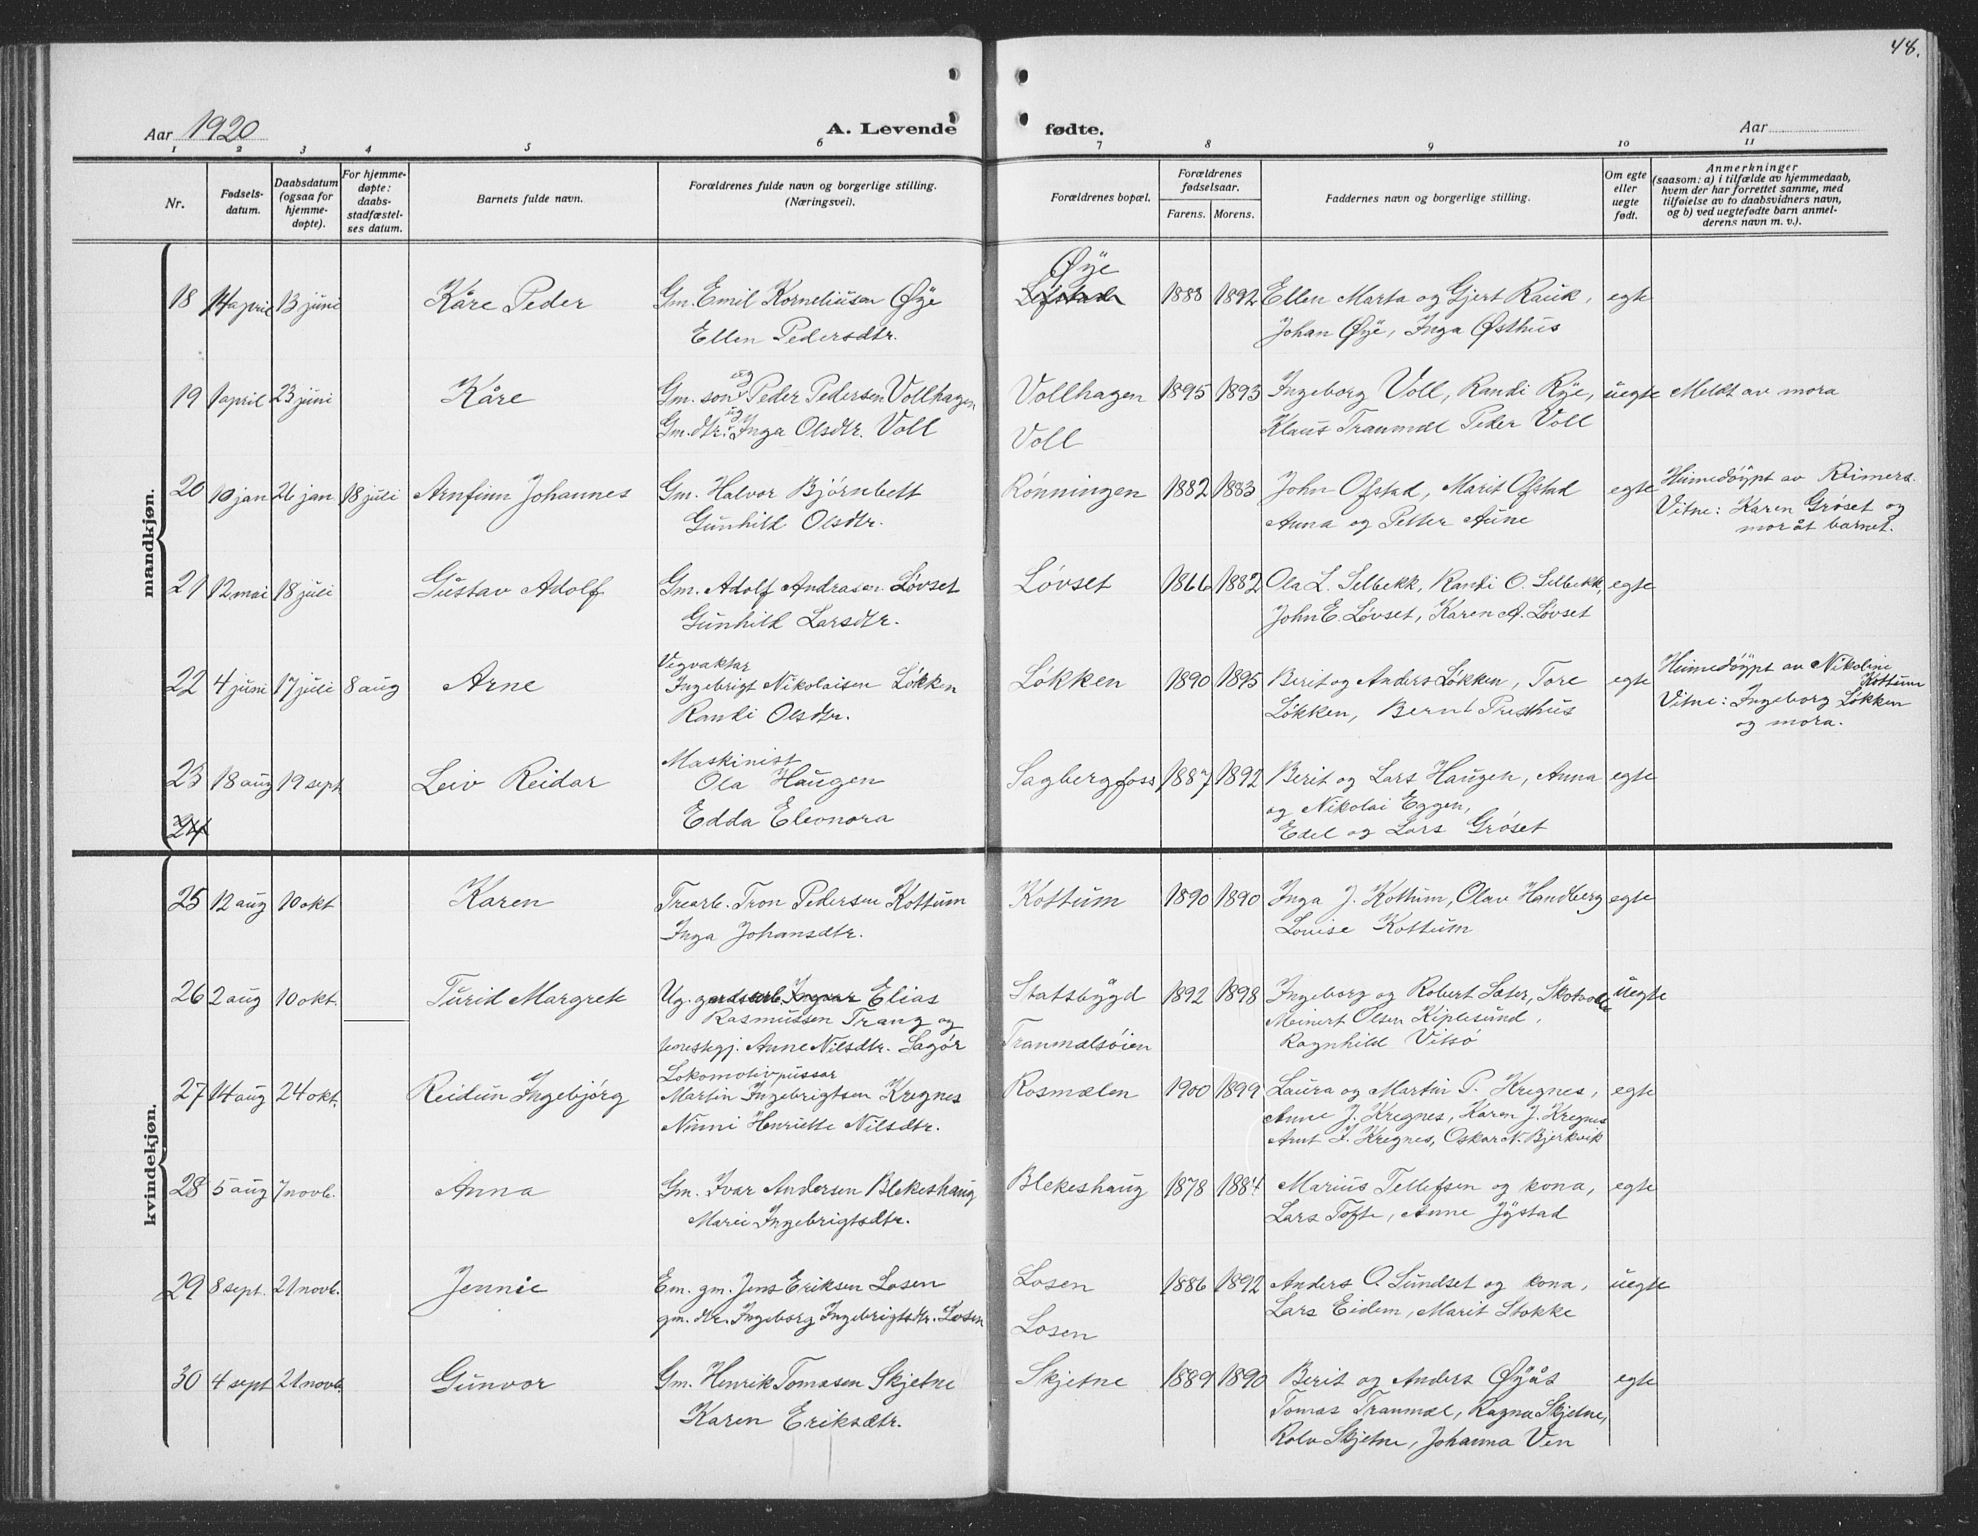 48.
Aar 1920
A. Levende fødte.
Aar
1 2 3 4 5 6 7 8 9 10 11
Nr.
Fødsels-
datum.
Daabsdatum
(ogsaa for
hjemme-
døpte).
For hjemme-
døpte:
daabs-
stadfæstel-
ses datum.
Barnets fulde navn.
Forældrenes fulde navn og borgerlige stilling.
(Næringsvei).
Forældrenes bopæl.
Forældrenes
fødselsaar.
Farens. Morens.
Faddernes navn og borgerlige stilling.
Om egte
eller
uegte
født.
Anmerkninger
(saasom: a) i tilfælde av hjemmedaab,
hvem der har forrettet samme, med
tilføielse av to daabsvidners navn,
og b) ved uegtefødte barn anmel-
derens navn m. v.).
mandkjøn.
Øye
18 14 april 13 juni Kåre Peder Gm. Emil Korneliusen Øye 1888 1892 Ellen Marta og Gjert Rauk, egte
Ellen Pedersdtr. Johan Øye, Inga Østhus
ug
19 1 april 23 juni Kåre Gm. son Peder Pedersen Vollhagen Vollhagen 1895 1893 Ingeborg Voll, Randi Rye, uegte Meldt av mora
ug
Gm. dtr. Inga Olsdtr. Voll Voll Klaus Tranmæl Peder Voll
20 10 jan 26 jan 18 juli Arnfinn Johannes Gm. Halvor Bjørnbett Rønningen 1882 1883 John Ofstad, Marit Ofstad egte Heimedöypt av Reimers.
Gunhild Olsdtr. Anna og Petter Aune Vitne: Karen Grøset og
mor åt barnet.
21 12 mai 18 juli Gustav Adolf Gm. Adolf Andrasen Løvset Løvset 1866 1882 Ola L. Selbekk, Randi O. Selbekk, egte
Gunhild Larsdtr. John E. Løvset, Karen A. Løvset
Vegvaktar
22 4 juni 17 juli 8 aug Arne Ingebrigt Nikolaisen Løkken Løkken 1890 1895 Berit og Anders Løkken, Tore egte Heimedöypt av Nikoline
Kottum
Randi Olsdtr. Løkken, Bernt Presthus Vitne: Ingeborg Løkken
og mora.
Maskinist
23 18 aug 19 sept Leiv Reidar Ola Haugen Sagbergfoss 1887 1892 Berit og Lars Haugen, Anna egte
og Nikolai Eggen,
24 Edda Eleonora Edel og Lars Grøset
kvindekjøn.
25 12 aug 10 okt Karen Trearb. Tron Pedersen Kottum Kottum 1890 1890 Inga J. Kottum, Olav Handberg egte
Inga Johansdtr. Louise Kottum
26 2 aug 10 okt. Turid Margrete Ug. gardsarb. Ingvar Elias Statsbygd 1892 1898 Ingeborg og Robert Sæter, uegte
Rasmussen Trang og Meinert Olsen Kiplesund,
Anne Nilsdtr. Sagør Tranmælsøien Ragnhild Vitsø
Lokomotivpussar
27 14 aug 24 okt. Reidun Ingebjørg Martin Ingebrigtsen Kregnes Rosmælen 1900 1899 Laura og Martin P. Kregnes, egte
Nunni Henriette Nilsdtr. Anne J. Kregnes, Karen J. Kregnes
Arnt I. Kregnes, Oskar N. Bjerkvik
28 5 aug 7 novb. Anna Gm. Ivar Andersen Blekeshaug Blekeshaug 1878 1884 Marius Tellefsen og kona, egte
Marie Ingebrigtsdtr. Lars Tofte, Anne Jystad
29 8 sept. 21 novb. Jennie Em. gm. Jens Eriksen Losen Losen 1886 1892 Anders O. Sundset og kona, uegte
gm. dtr. Ingeborg Ingebrigtsdtr. Losen Losen Lars Eidem, Marit Stokke
30 4 sept 21 novb. Gunvor Gm. Henrik Tomasen Skjetne Skjetne 1889 1890 Berit og Anders Øyås egte
Karen Eriksdtr. Tomas Tranmæl, Ragna Skjetne,
Rolv Skjetne, Johanna Ven